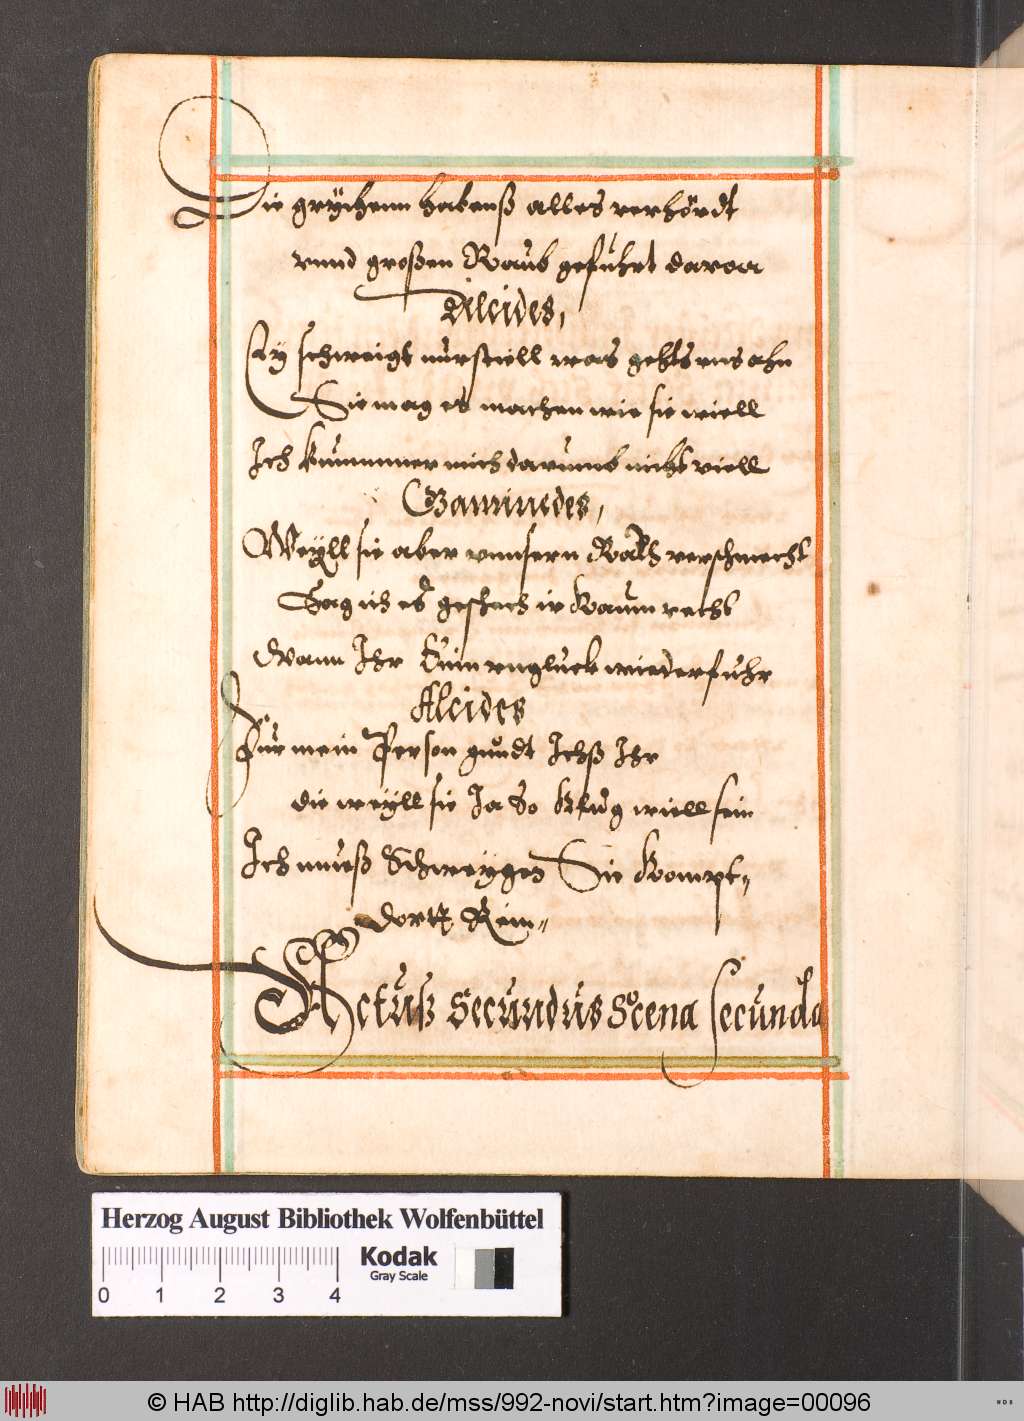 Die grÿchenn habenß alles verhördt
vnnd großen Raub gefuhrt darvon
Alcides,
Ey schweigt nur stiell was gehts vns ahn
Sie mag es machen wie sie wiell
Ich kummmer mich darumb nicht viell
Gaminedes,
Weÿll sie aber vnnsern Rath verschmecht
Sag ich es geschech ir kaum recht
Wann Ihr Ein vngluck wiederfuhr
Alcides
Fur mein Person gundt Ichß Ihr
die weÿll sie Ja So klug wiell sein
Ich mueß Schweygen Sie kompt
dortt Rein
Actuß Secundus Scena Secunda
Herzog August Bibliothek Wolfenbüttel
Kodak
Gray Scale
0 1 2 3 4
© HAB http://diglib.hab.de/mss/992-novi/start.htm?image=00096